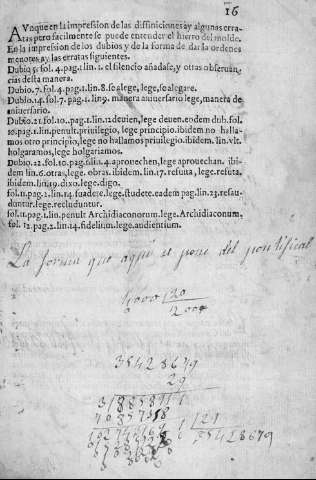 16
AVnque en la impression de las diffiniciones ay algunas erra-
tas pero facilmente se puede entender el hierro del molde.
En la impression de los dubios y de la forma de dar la ordenes
menores ay, las erratas siguientes.
Dubio 5. fol. 4. pag. 1. lin. 1. el silencio añadase, y otras obseruan-
cias desta manera.
Dubio. 7. fol. 4. pag. 1. lin. 8. so alege, lege, so alegare.
Dubio. 14. fol. 7. pag. 1. lin 9. manera aniuersario lege, manera de
aniuersario.
Dubio. 21. fol. 10. pag. 1. lin 12 deuien, lege deuen. eodem dub. fol.
10. pag. 1. lin. penult. priuilegio, lege principio. ibidem no halla-
mos otro principio, lege no hallamos priuilegio. ibidem. lin. vlt.
holgaramos, lege holgariamos.
Dubio. 12. fol. 10. pag. lin. 4. aprouechen, lege aprouechan. ibi-
dem lin. 6. otras, lege, obras. ibidem. lin. 17. refuta, lege, refuta,
ibidem. lin. 19. dixo. lege. digo.
fol. 11. pag. 1. lin. 14. suadete. lege. studete. eadem pag. lin. 23. resau-
duntur. lege. recluduntur.
fol. 11. pag. 1. lin. penult Archidiaconorum. lege. Archidiaconum,
fol. 12. pag. 2. lin. 14. fidelium. lege. audientium.
La forma que aqui se pone del pontifical
4000 20
0 2000
35428679
29
29
35428679